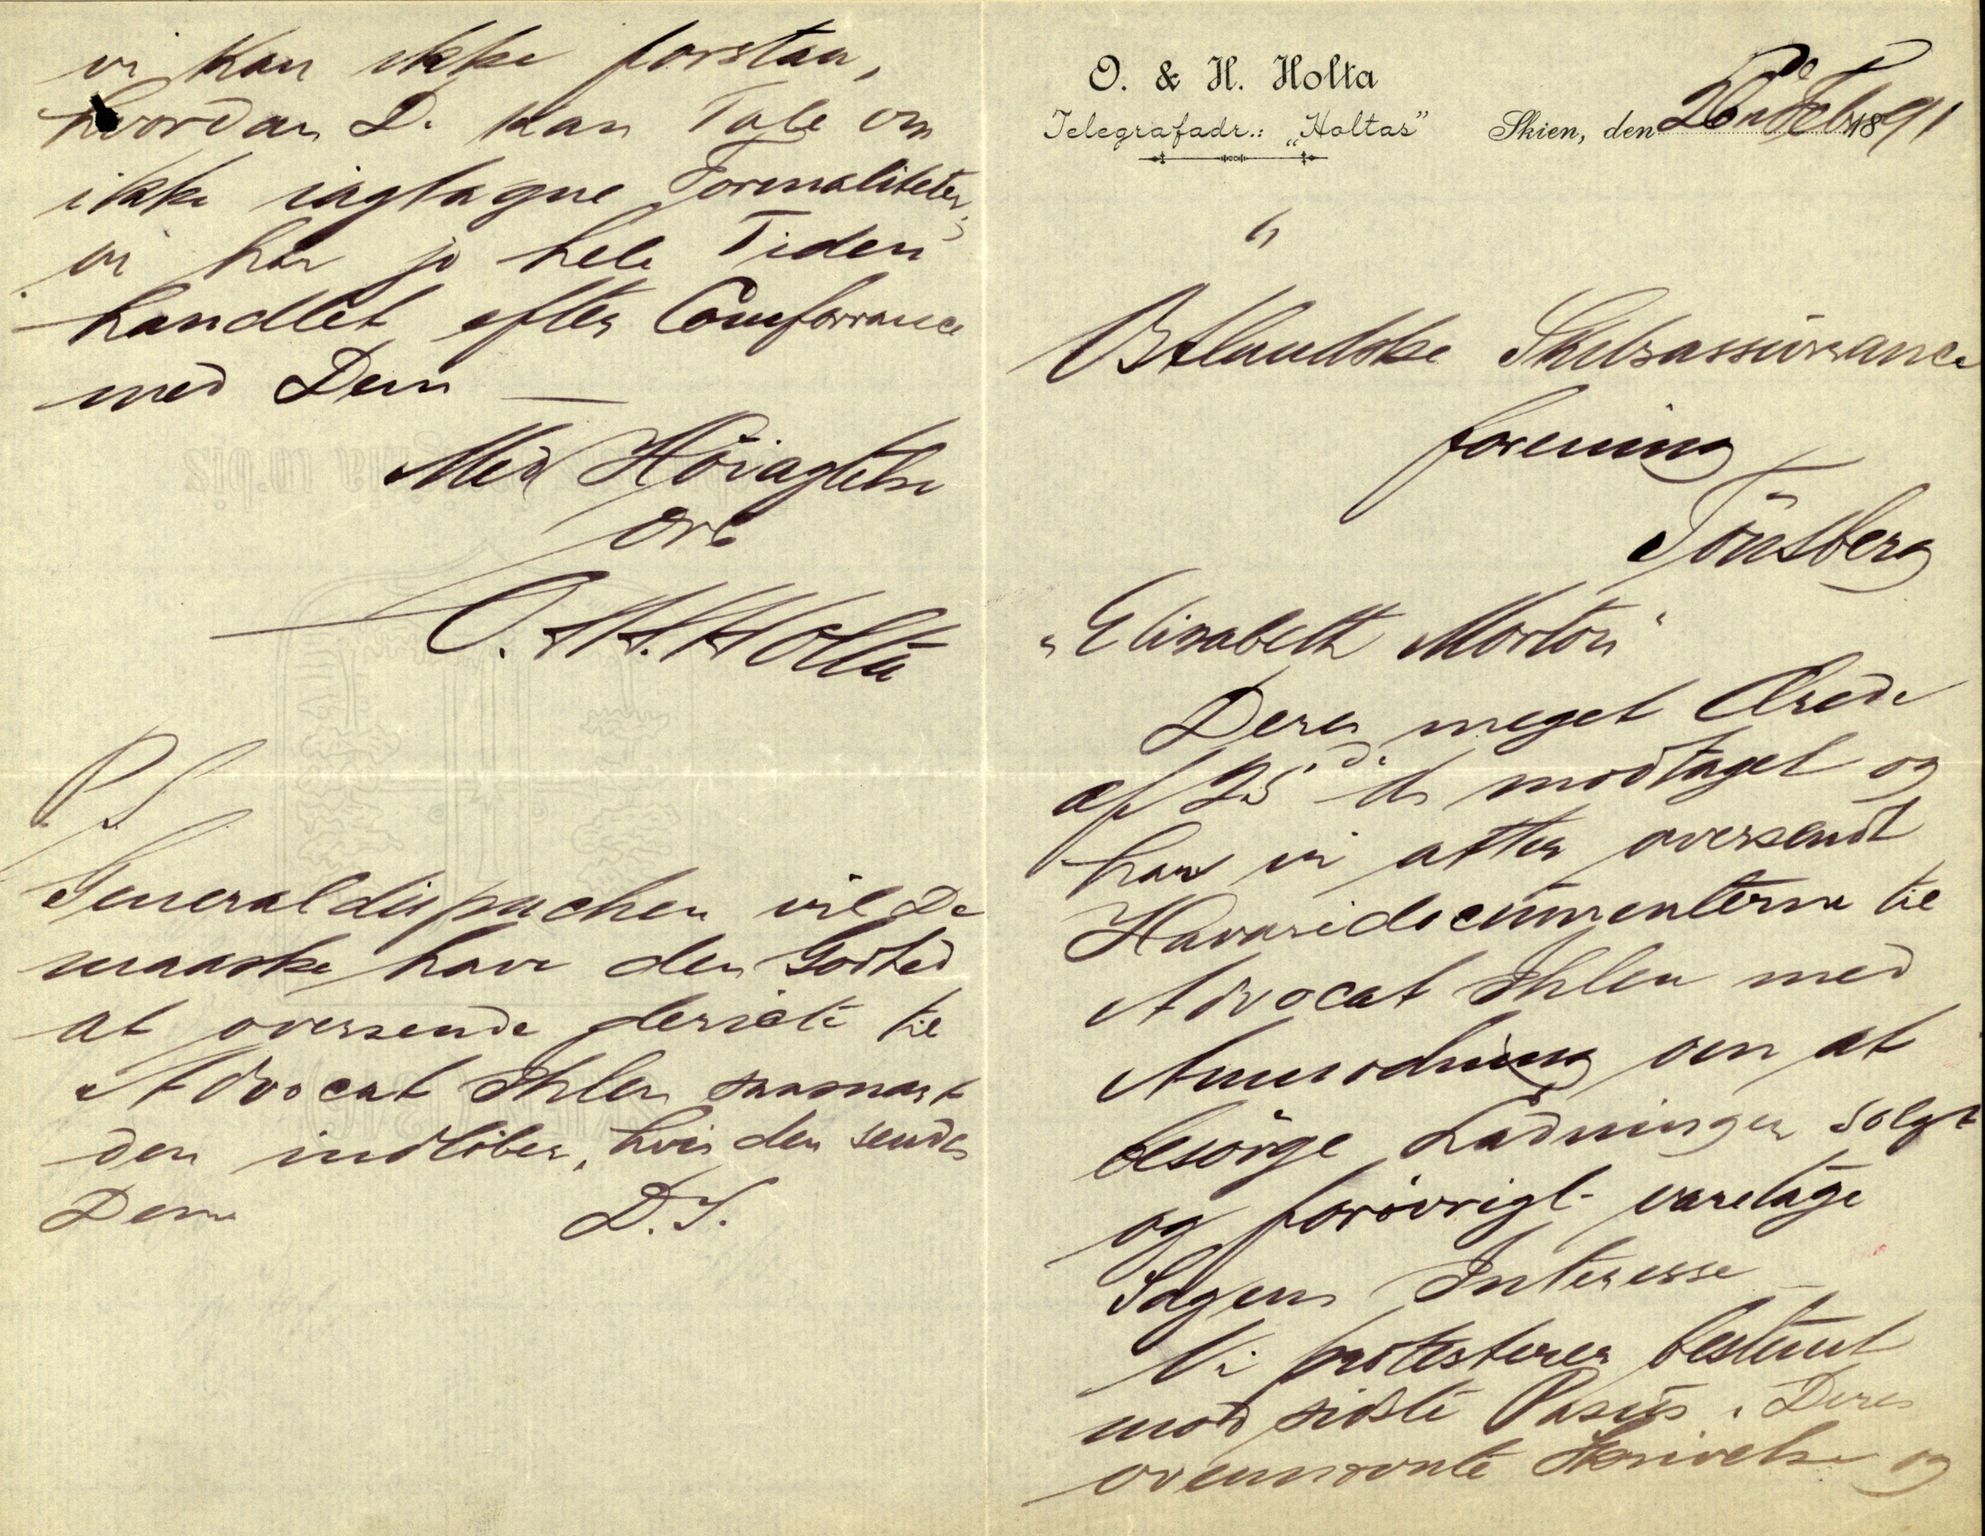 O. & H. Holta
Telegrafadr.: „Holtas" Skien, den 26de Febr 1891
Østlandske Skibsassurance
forening
Tönsberg
„Elisabeth Morton"
Deres meget Ærede
af 25de ds modtaget og
har vi atter oversendt
Havaridocumenterne til
Advocat Ihlen med
Anmodning om at
besörge Ladningen solgt
og forövrigt varetage
Sagens Interesse
Vi protesterer bestemt
mod sidste Passus i Deres
ovennævnte Skrivelse og
vi kan ikke forstaa,
hvordan D. kan Tale om
ikke iagtagne Formaliteter,
vi har jo hele Tiden
handlet efter Comferrance
med Dem —
Med Höiagtelse
O. & H. Holta
P.S.
Generaldispachen vil De
maaske have den Godhed
at oversende direkte til
Advocat Ihlen saasnart
den indlöber, hvis den sendes
Dem D.S.